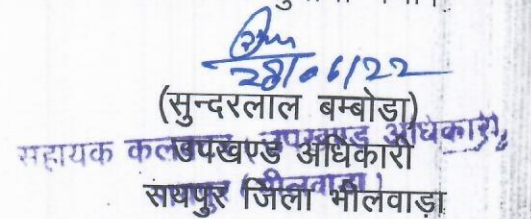 28/06/22
(सुन्दरलाल बम्बोडा)
सहायक कलक्टर उपखण्ड अधिकारी,
उपखण्ड अधिकारी
रायपुर (भीलवाड़ा)
रायपुर जिला भीलवाड़ा